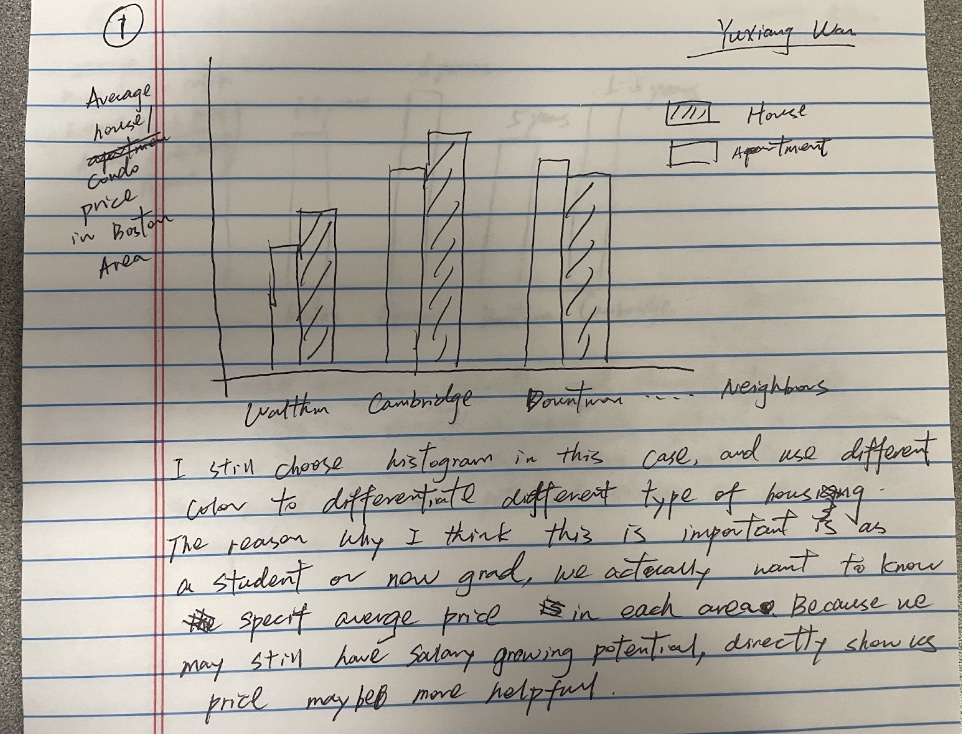 1
Yuxiang Wan
Average
house/
apartmen
condo
price
in Boston
Area
House
Apartment
Walthm
Cambridge
Downtown
....
Neighbours
I still choose histogram in this case, and use different
color to differentiate different type of housing.
The reason why I think this is important is as
a student or new grad, we actually want to know
specif averge price in each area. Because we
may still have salary growing potential, directly show us
price maybe more helpful.